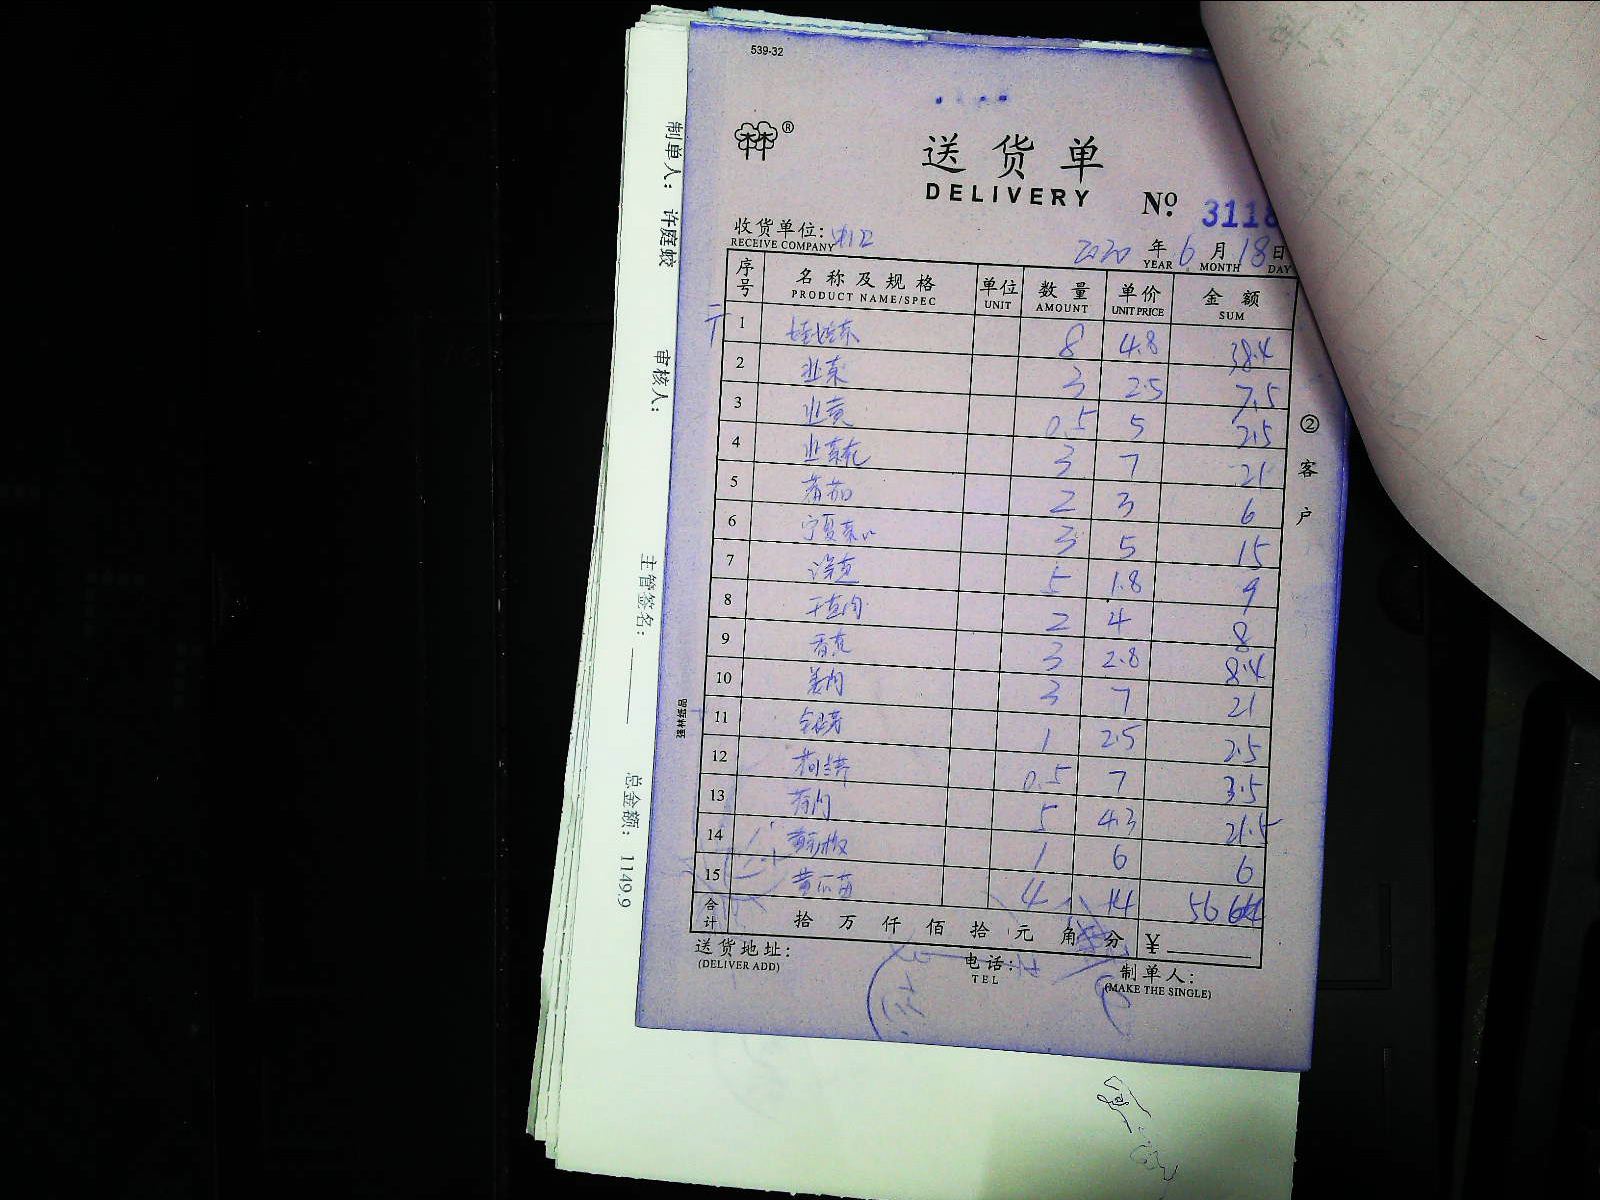 539-32
®
送货单
DELIVERY
No. 3118
收货单位:
RECEIVE COMPANY
2020 年 6 月 18 日
YEAR MONTH DAY
序号 名称及规格 单位 数量 单价 金额
PRODUCT NAME/SPEC UNIT AMOUNT UNIT PRICE SUM
1 娃娃菜 8 4.8 38.4
2 韭菜 3 2.5 7.5
3 韭黄 0.5 5 2.5
4 韭菜花 3 7 21
5 蕃茄 2 3 6
6 宁夏菜心 3 5 15
7 5 1.8 9
8 2 4 8
9 香菜 3 2.8 8.4
10 姜肉 3 7 21
11 1 2.5 2.5
12 0.5 7 3.5
13 5 4.3 21.5
14 1 6 6
15 黄瓜苗 4 14 56
合计 拾 万 仟 佰 拾 元 角 分 ¥
送货地址:
(DELIVER ADD)
电话:
TEL
制单人:
(MAKE THE SINGLE)
②客户
强林纸品
制单人: 许庭蛟
审核人:
主管签名:
总金额: 1149.9